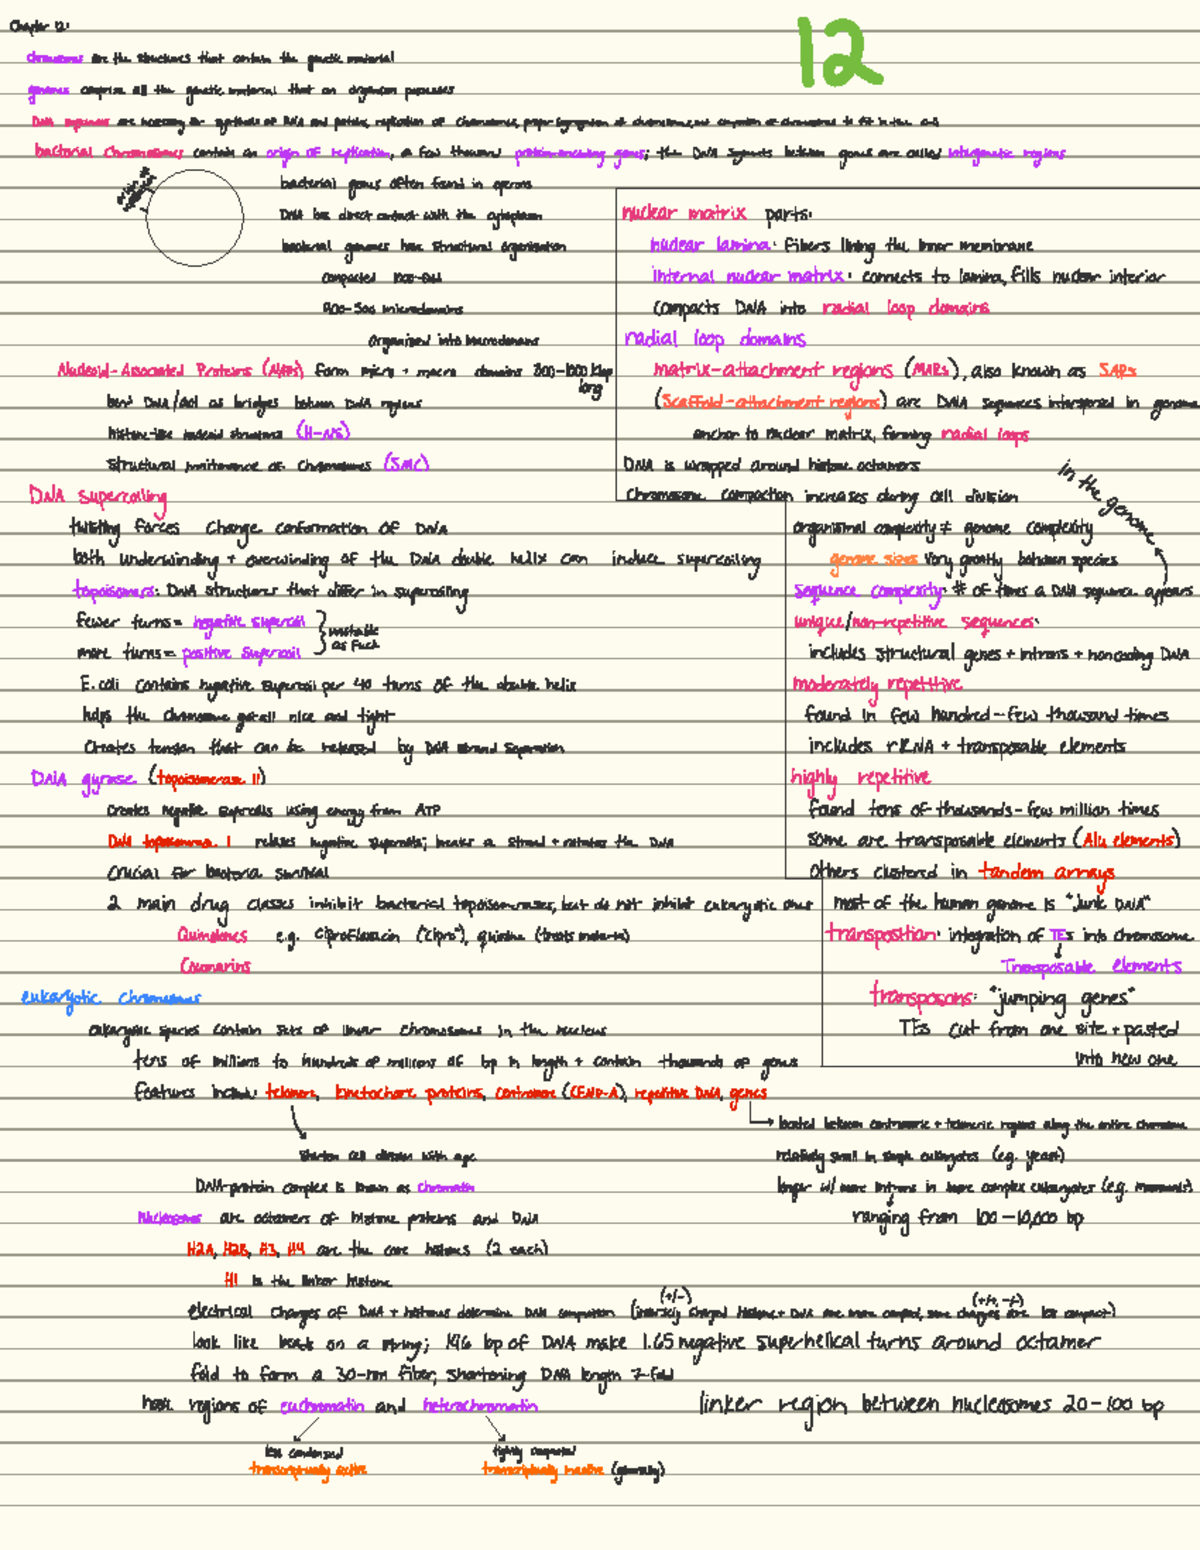 Chapter 12:
12
chromosomes are the structures that contain the genetic material
genomes comprise all the genetic material that an organism possesses
DNA sequences are necessary for synthesis of RNA and proteins, replication of chromosomes, proper segregation of chromosomes, and compaction of chromosomes to fit in the cell
bacterial chromosomes contain an origin of replication, a few thousand protein-encoding genes; the DNA segments between genes are called intergenetic regions
origin of replication
bacterial genes often found in operons
DNA has direct contact with the cytoplasm
bacterial genomes have structural organization
compacted 1000-fold
400-500 microdomains
organized into macrodomains
800-1000 kbp long
Nucleoid-Associated Proteins (NAPs) form micro + macro domains
bend DNA/act as bridges between DNA regions
histone-like nucleoid structures (H-NS)
structural maintenance of chromosomes (SMC)
DNA supercoiling
twisting forces change conformation of DNA
both underwinding + overwinding of the DNA double helix can induce supercoiling
topoisomers: DNA structures that differ in supercoiling
fewer turns = negative supercoil
more turns = positive supercoil
unstable as fuck
E. coli contains negative supercoil per 40 turns of the double helix
helps the chromosome get all nice and tight
creates tension that can be released by DNA strand separation
DNA gyrase (topoisomerase II)
creates negative supercoils using energy from ATP
DNA topoisomerase I relaxes negative supercoils; breaks a strand + rotates the DNA
crucial for bacteria survival
2 main drug classes inhibit bacterial topoisomerases, but do not inhibit eukaryotic ones
Quinolones e.g. ciprofloxacin ("cipro"), quinine (treats malaria)
Coumarins
eukaryotic chromosomes
eukaryotic species contain sets of linear chromosomes in the nucleus
tens of millions to hundreds of millions of bp in length + contain thousands of genes
features include: telomeres, kinetochore proteins, centromere (CENP-A), repetitive DNA, genes
shorten cell division with age
DNA-protein complex is known as chromatin
Nucleosomes are octamers of histone proteins and DNA
H2A, H2B, H3, H4 are the core histones (2 each)
H1 is the linker histone
electrical charges of DNA + histones determine DNA compaction (inversely charged histones + DNA are more compact, same charges are less compact)
(+/-) (+/+, -/-)
look like beads on a string; 146 bp of DNA make 1.65 negative superhelical turns around octamer
fold to form a 30-nm fiber, shortening DNA length 7-fold
have regions of euchromatin and heterochromatin
less condensed
transcriptionally active
tightly compacted
transcriptionally inactive (generally)
nuclear matrix parts:
nuclear lamina: fibers lining the inner membrane
internal nuclear matrix: connects to lamina, fills nuclear interior
compacts DNA into radial loop domains
radial loop domains
matrix-attachment regions (MARs), also known as SARs
(scaffold-attachment regions) are DNA sequences interspersed in genome
anchor to nuclear matrix, forming radial loops
DNA is wrapped around histone octamers
chromosome compaction increases during cell division
organismal complexity ≠ genome complexity
genome sizes vary greatly between species
sequence complexity: # of times a DNA sequence appears
in the genome
unique/non-repetitive sequences:
includes structural genes + introns + noncoding DNA
moderately repetitive
found in few hundred - few thousand times
includes rRNA + transposable elements
highly repetitive
found tens of thousands - few million times
some are transposable elements (Alu elements)
others clustered in tandem arrays
most of the human genome is "junk DNA"
transposition: integration of TEs into chromosome
Transposable elements
transposons: "jumping genes"
TEs cut from one site + pasted
into new one
located between centromeric + telomeric regions along the entire chromosome
relatively small in simple eukaryotes (e.g. yeast)
longer w/ more introns in more complex eukaryotes (e.g. mammals)
ranging from 100 - 10,000 bp
linker region between nucleosomes 20 - 100 bp